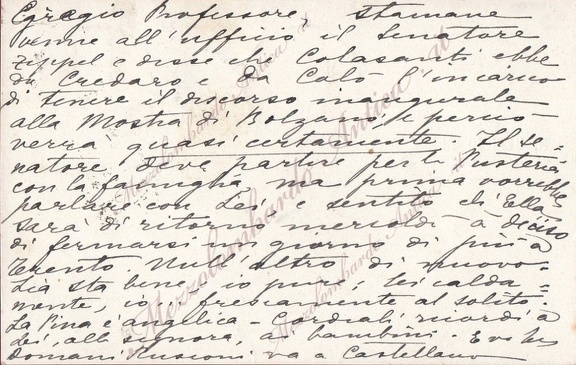 Egregio Professore, stamane
venne all'ufficio il Senatore
Zippel e disse che Colasanti ebbe
da Credaro e da Calò l'incarico
di tenere il discorso inaugurale
alla Mostra di Bolzano, e perciò
verrà quasi certamente. Il se-
natore deve partire per la Pusteria
con la famiglia, ma prima vorrebbe
parlare con Lei e sentito che Ella
sarà di ritorno mercoldì à deciso
di fermarsi un giorno di più a
Trento. Null'altro di nuovo.
Lia sta bene - io pure, lei calda-
mente, io frescamente al solito.
La Pina è angelica - Cordiali ricordi a
Lei, alla signora, ai bambini.
Domani va a Castellano
Mezzolombardo Antica